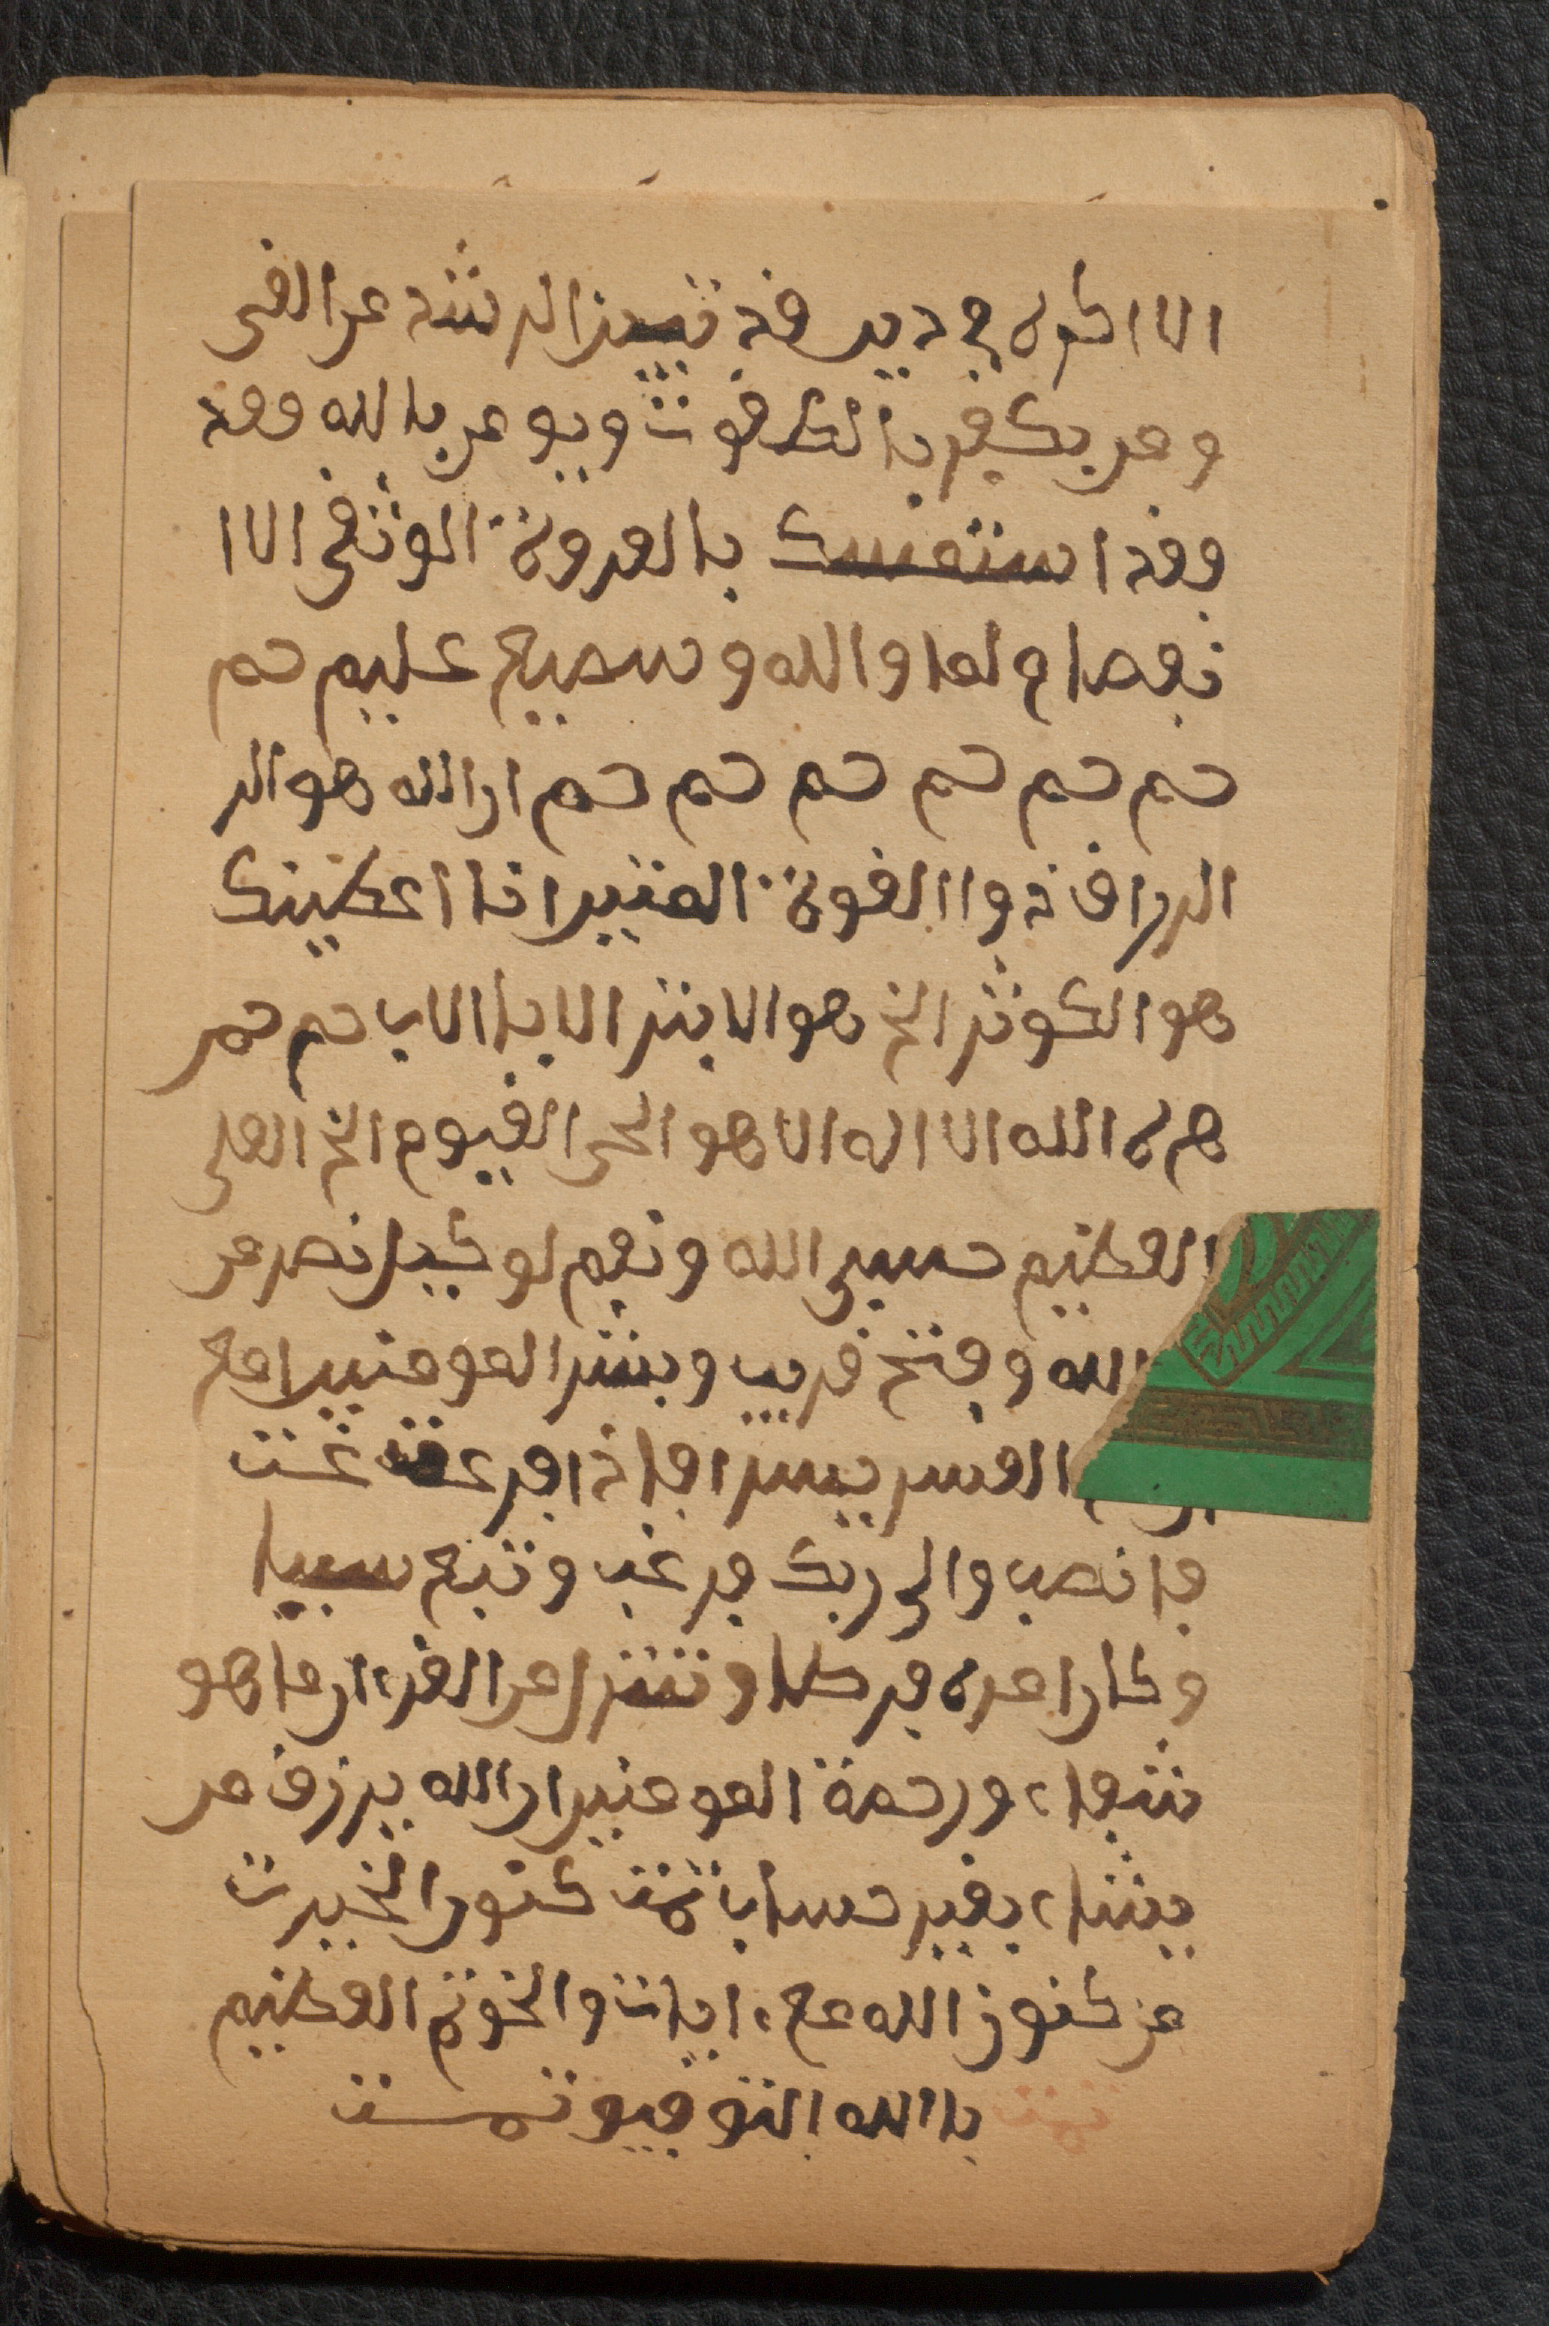 الا اكره في دين فد تبين الرشد عن الغى
ومن يكفر بالطغوت ويومن بالله وفد
وفد استمسك بالعروة الوثفى الاا
نفصام لها والله و سميع عليم حم
حم حم حم حم حم حم ان الله هو الر
الرزاف ذواالفوة المتين انا اعطينك
هو الكوثر الخ هو الابتر الا بالاب حم حم
هم لا الله الا اله الا هو الحى الفيوم الخ العلى
العظيم حسبى الله ونعم لوكيل نصر من
الله وفتح فريب وبشر المومنين ا مع
العسر يسرا فاذا فرغت غت
فانصب والى ربك فرغب وتبع سببا
وكان امره فرطا وننزل من الفران ما هو
شفاء ورحمة المومنين ان الله يرزف من
يشاء بغير حساب تمت كنوز الخيرت
من كنوز الله مع ايات والخوتم العظيم
تمت باالله التوفيو تمت